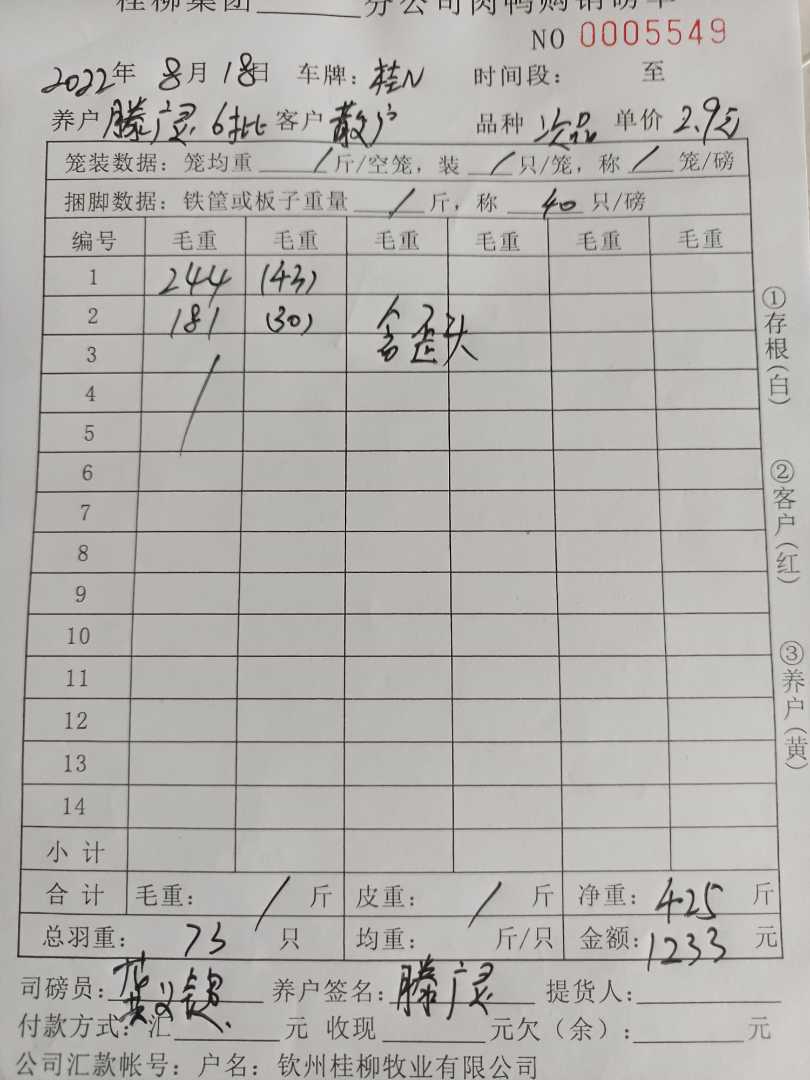 桂柳集团______分公司肉鸭购销磅单
NO 0005549
2022年 8月 18日 车牌: 桂N 时间段: 至
养户 滕广灵 6批 客户 散户 品种 次品 单价 2.9元
笼装数据: 笼均重 / 斤/空笼, 装 / 只/笼, 称 / 笼/磅
捆脚数据: 铁筐或板子重量 / 斤, 称 40 只/磅
编号 毛重 毛重 毛重 毛重 毛重 毛重
1 244 (43)
2 181 (30) 含歪头
3 /
4
5
6
7
8
9
10
11
12
13
14
小计
合计 毛重: / 斤 皮重: / 斤 净重: 425 斤
总羽重: 73 只 均重: 斤/只 金额: 1233 元
司磅员: 黄 养户签名: 滕广灵 提货人:
付款方式: 汇______元 收现______元欠(余):______元
公司汇款帐号: 户名: 钦州桂柳牧业有限公司
①存根(白)
②客户(红)
③养户(黄)